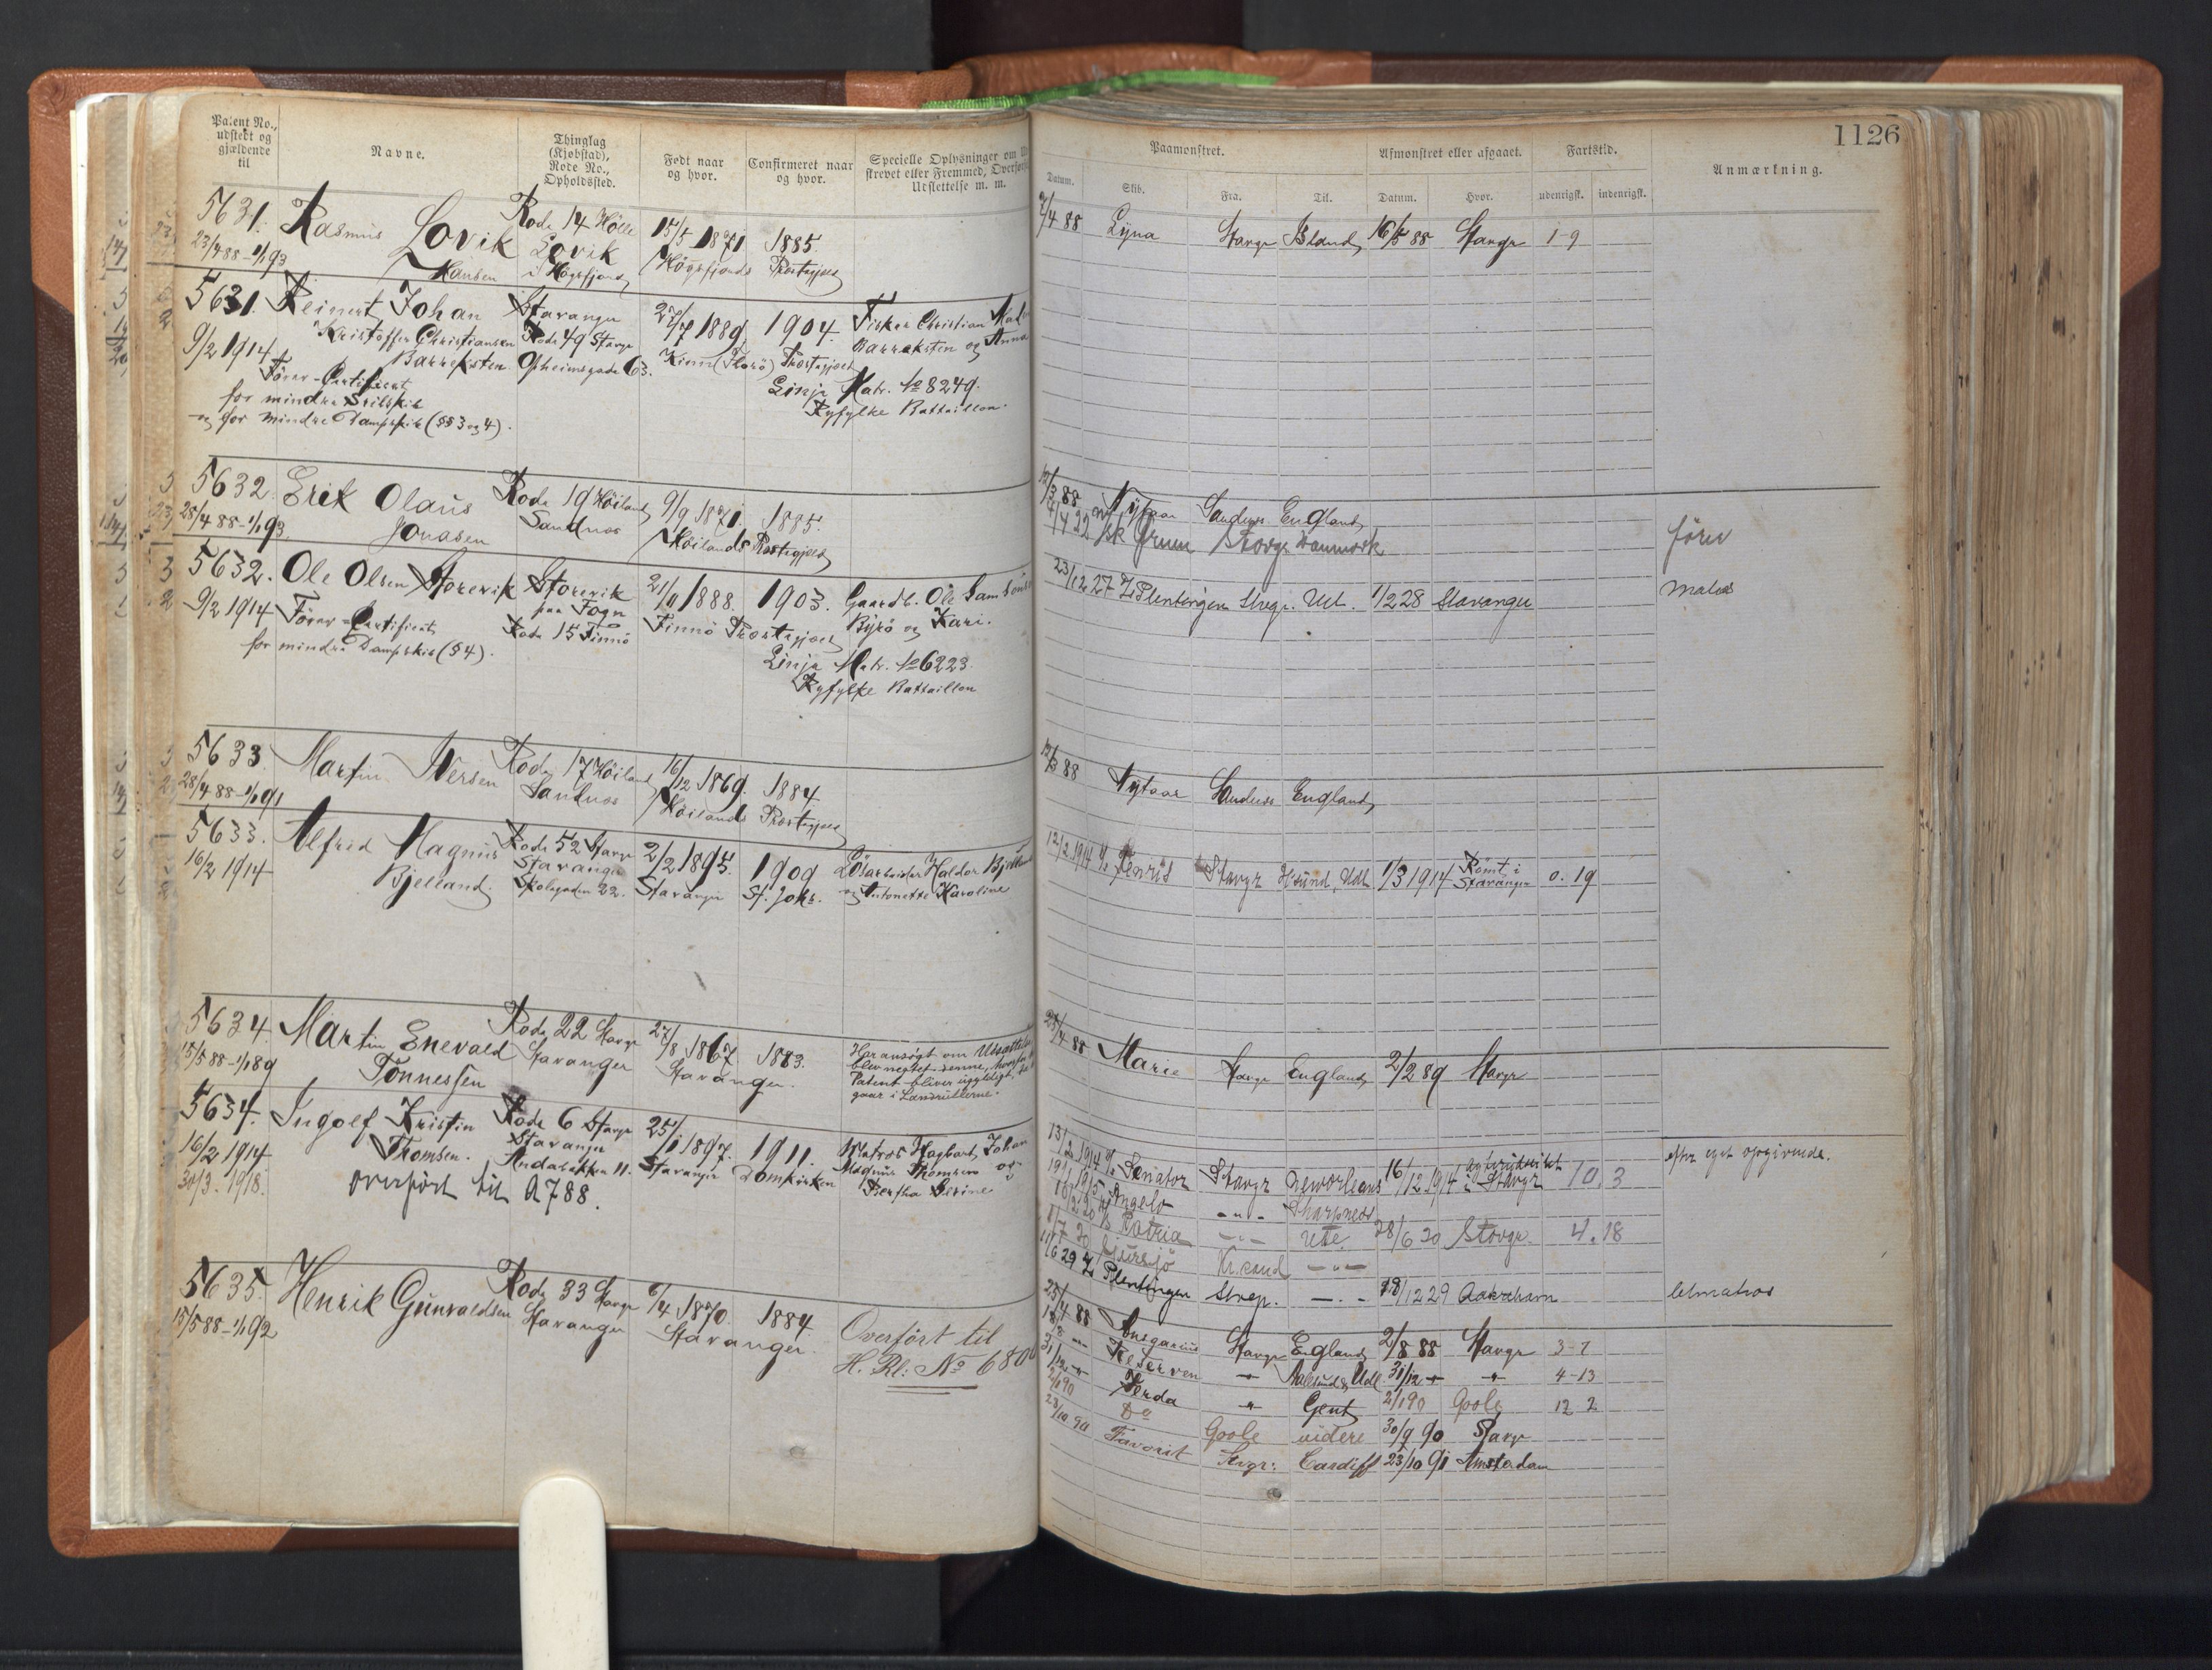 Patent No.,
udstedt og
gjældende
til
Navne.
Thinglag
(Kjøbstad),
Rode No.,
Opholdssted.
Født naar
og hvor.
Confirmeret naar
og hvor.
Specielle Oplysninger om
strevet eller Fremmed, Overført
Udslettelse m. m.
5631. Rasmus Lovik Rode 14 Hölle 15/5 1871 1885.
23/4 88 - 1/1 93 Hansen Lovik i Högsfjord Högsfjords Præstegjæld
5631. Reinert Johan Stavanger 27/7 1889. 1904. Fisker Christian
Kristoffer Christiansen Rode 49 Stavgr Barreksten og Anna
9/2 1914 Barreksten Opheimsgade 63. Kinn (Florö) Præstegjæld
Förer-Certificat Linje Matr. No 8249.
for mindre Seilskib Ryfylke Battaillon.
og for mindre Dampskib (§§ 3 og 4).
5632. Erik Olaus Rode 19 Höiland 9/9 1871. 1885.
28/4 88 - 1/1 93 Jonasen Sandnæs Höilands Præstegjæld
5632. Ole Olsen Storevik Storevik 21/11 1888. 1903. Gaardb. Ole Samsons
9/2 1914 Förer-Certificat paa Fogn Finnö Præstegjæld Byrö og Kari.
for mindre Dampskib (§ 4). Rode 15 Finnö
Linje Matr. No 6223.
Ryfylke Battaillon
5633. Martin Iversen Rode 17 Höiland 16/12 1869. 1884.
28/4 88 - 1/1 91 Sandnæs Höilands Præstegjæld
5633. Alfred Magnus Rode 52 Stavgr 2/2 1895. 1909 Lösarbeider Haldor Bjelland
16/2 1914 Bjelland. Stavanger Skolegaden 22. Stavanger St. Joh. og Antonette Karoline
5634. Martin Enevald Rode 22 Stavgr 27/8 1867. 1883.
15/5 88 - 1/1 89 Tönnessen Stavanger Stavanger.
Har ansögt om Udsættelse
blev negtet denne, hvorfor
Patent bliver ugyldigt,
gaar i Landrullerne.
5634. Ingolf Kristin Rode 6 Stavgr 25/1 1897. 1911. Matros Hagbart Johan
16/2 1914 Thomsen. Stavanger Stavanger Domkirken Magnus Thomsen og
30/3. 1918. overfört til A 788. Bertha Serine
5635. Henrik Gunvaldsen Rode 33 Stavgr 6/4 1870. 1884.
15/5 88 - 1/1 92 Stavanger Stavanger.
Overfört til
H. Rl: No 680
1126
Paamønstret.
Afmønstret eller afgaaet.
Fartstid.
Anmærkning.
Datum. Skib. Fra. Til. Datum. Hvor. udenrigsk. indenrigsk.
7/4 88 Lyna Stavgr Island 16/5 88 Stavgr 1-9
12/3 88 Nytaar Sandnæs England
4/4 22 sk Ørnen Stavgr Danmark förer
23/12 27 Plentingen Stvgr. Udl. 1/2 28 Stavanger Matros
12/3 88 Nytaar Sandnæs England
12/2 1914 Fenris Stavgr H.sund, Udl 1/3 1914 Römt i Stavanger 0. 19
25/4 88 Marie Stavgr England 2/2 89 Stavgr
13/2 1914 Senator Stavgr New Orleans 16/12 1914 i Stavgr 10. 3 efter eget opgivende.
19/1 1915 Angelo - " - Sharpness
10/2 20 Patria - " - Ude. 28/6 20 Stavgr. 4. 18
1/7 20 Kr.sand - " -
29 Plentingen Stvgr. - . - 18/12 29 Aakrehavn letmatros
25/4 88 Ansgarius Stavgr England 2/8 88 Stavgr 3-7
18/8 - " Reserven " Aalesund & Udl. 31/12 " " 4-13
31/12 " Verda " Gent 2/1 90 Goole 12 2
2/1 90 Do Goole videre 30/9 90 Stavgr
23/10 90 Favorit Stvgr: Cardiff 23/10 91 Amsterdam